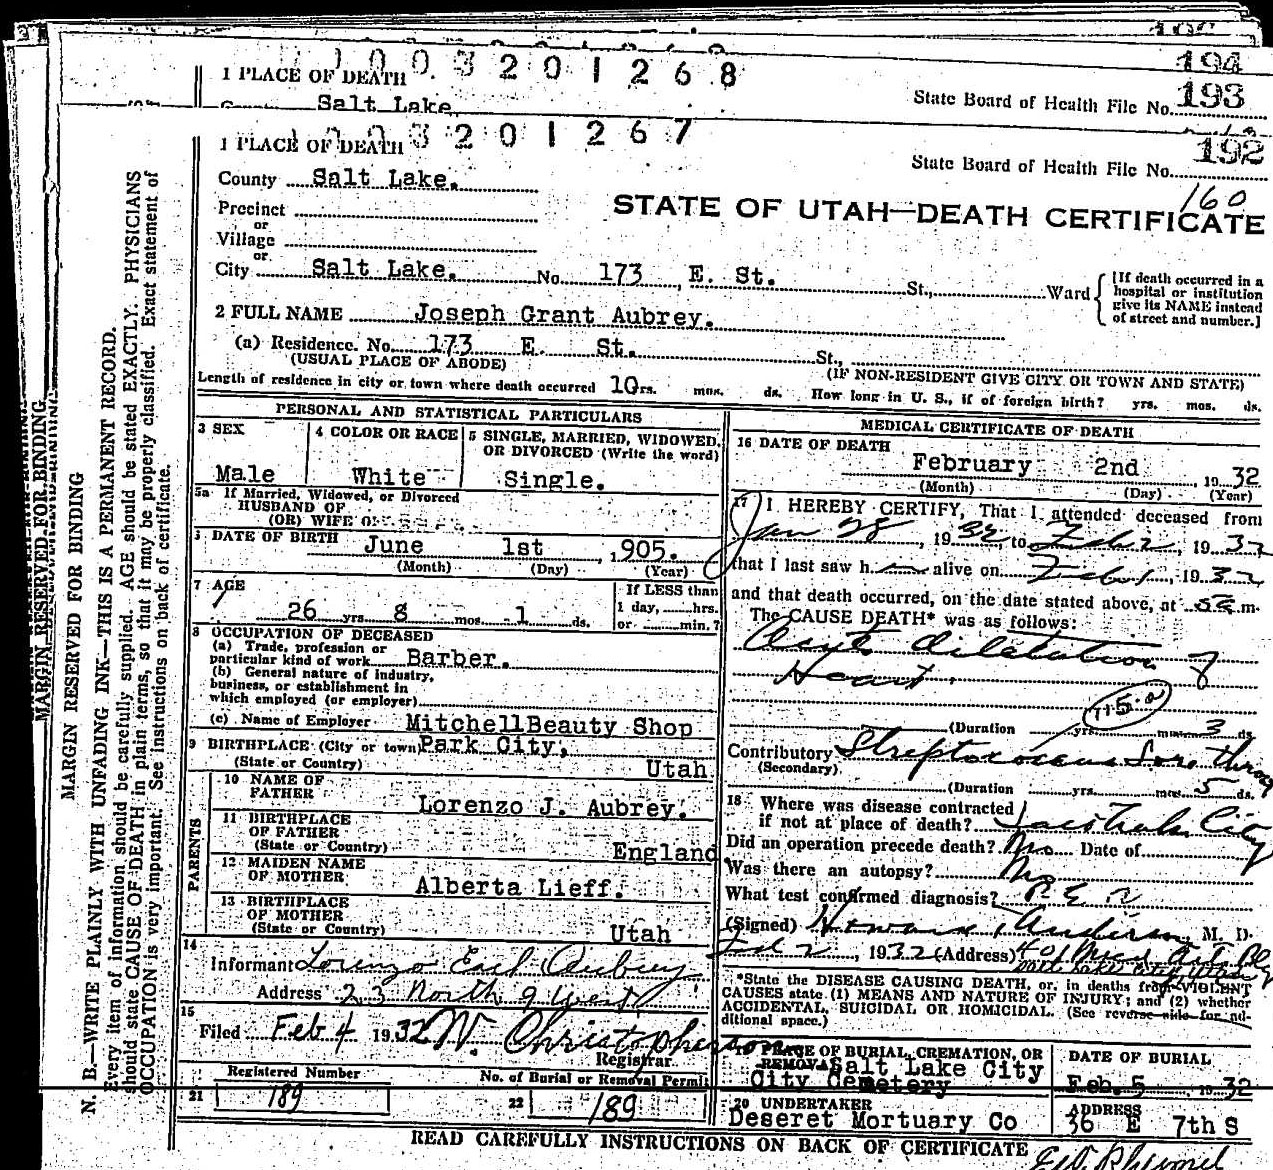 194
1 PLACE OF DEATH
1003201268
State Board of Health File No. 193
Salt Lake
1003201267
1 PLACE OF DEATH
State Board of Health File No. 192
160
County Salt Lake.
STATE OF UTAH—DEATH CERTIFICATE
Precinct
or
Village
or
City Salt Lake. No. 173 E. St. St., Ward
[If death occurred in a
hospital or institution
give its NAME instead
of street and number.]
2 FULL NAME Joseph Grant Aubrey.
(a) Residence. No. 173 E. St. St.,
(USUAL PLACE OF ABODE) (IF NON-RESIDENT GIVE CITY OR TOWN AND STATE)
Length of residence in city or town where death occurred 10 yrs. mos. ds. How long in U. S., if of foreign birth? yrs. mos. ds.
PERSONAL AND STATISTICAL PARTICULARS
3 SEX
Male
4 COLOR OR RACE
White
5 SINGLE, MARRIED, WIDOWED,
OR DIVORCED (Write the word)
Single.
5a If Married, Widowed, or Divorced
HUSBAND OF
(OR) WIFE OF
DATE OF BIRTH June 1st ,1905.
(Month) (Day) (Year)
7 AGE
26 yrs. 8 mos. 1 ds.
If LESS than
1 day, hrs.
or min.?
8 OCCUPATION OF DECEASED
(a) Trade, profession or
particular kind of work Barber.
(b) General nature of industry,
business, or establishment in
which employed (or employer)
(c) Name of Employer Mitchell Beauty Shop
9 BIRTHPLACE (City or town) Park City,
(State or Country) Utah
PARENTS
10 NAME OF
FATHER Lorenzo J. Aubrey.
11 BIRTHPLACE
OF FATHER
(State or Country) England
12 MAIDEN NAME
OF MOTHER Alberta Lieff.
13 BIRTHPLACE
OF MOTHER
(State or Country) Utah
14
Informant Lorenzo Earl Aubrey
Address 23 North 9 West
15
Filed Feb 4 1932 W. Christopherson
Registrar
Registered Number
21 189
No. of Burial or Removal Permit
22 189
MEDICAL CERTIFICATE OF DEATH
16 DATE OF DEATH
February 2nd , 1932
(Month) (Day) (Year)
17 I HEREBY CERTIFY, That I attended deceased from
Jan 28, 1932, to Feb 2, 1932
that I last saw h alive on Feb 1, 1932
and that death occurred, on the date stated above, at 5 m.
The CAUSE DEATH* was as follows:
Acute dilatation of
Heart.
(Duration yrs. mos. 3 ds.
Contributory Streptococcus Sore throat
(Secondary)
(Duration yrs. mos. 5 ds.
18 Where was disease contracted
if not at place of death? City
Did an operation precede death? No Date of
Was there an autopsy? No
What test confirmed diagnosis?
(Signed) Howard Anderson, M. D.
Feb 2, 1932 (Address) Med. Art. Bldg
*State the DISEASE CAUSING DEATH, or, in deaths from VIOLENT
CAUSES state (1) MEANS AND NATURE OF INJURY; and (2) whether
ACCIDENTAL, SUICIDAL OR HOMICIDAL. (See reverse side for ad-
ditional space.)
19 PLACE OF BURIAL, CREMATION, OR
REMOVAL Salt Lake City
City Cemetery
DATE OF BURIAL
Feb. 5 1932
20 UNDERTAKER
Deseret Mortuary Co
ADDRESS
36 E 7th S
READ CAREFULLY INSTRUCTIONS ON BACK OF CERTIFICATE
MARGIN RESERVED FOR BINDING
MARGIN RESERVED FOR BINDING
N. B.—WRITE PLAINLY WITH UNFADING INK—THIS IS A PERMANENT RECORD.
Every item of information should be carefully supplied. AGE should be stated EXACTLY. PHYSICIANS
should state CAUSE OF DEATH in plain terms, so that it may be properly classified. Exact statement of
OCCUPATION is very important. See Instructions on back of certificate.